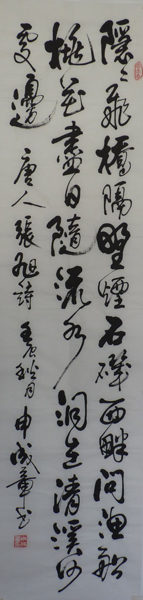 隱々飛橋隔野煙石磯西畔問漁船
桃花盡日隨流水洞在清溪何
處邊 唐人張旭詩 壬辰秋月 申成章书